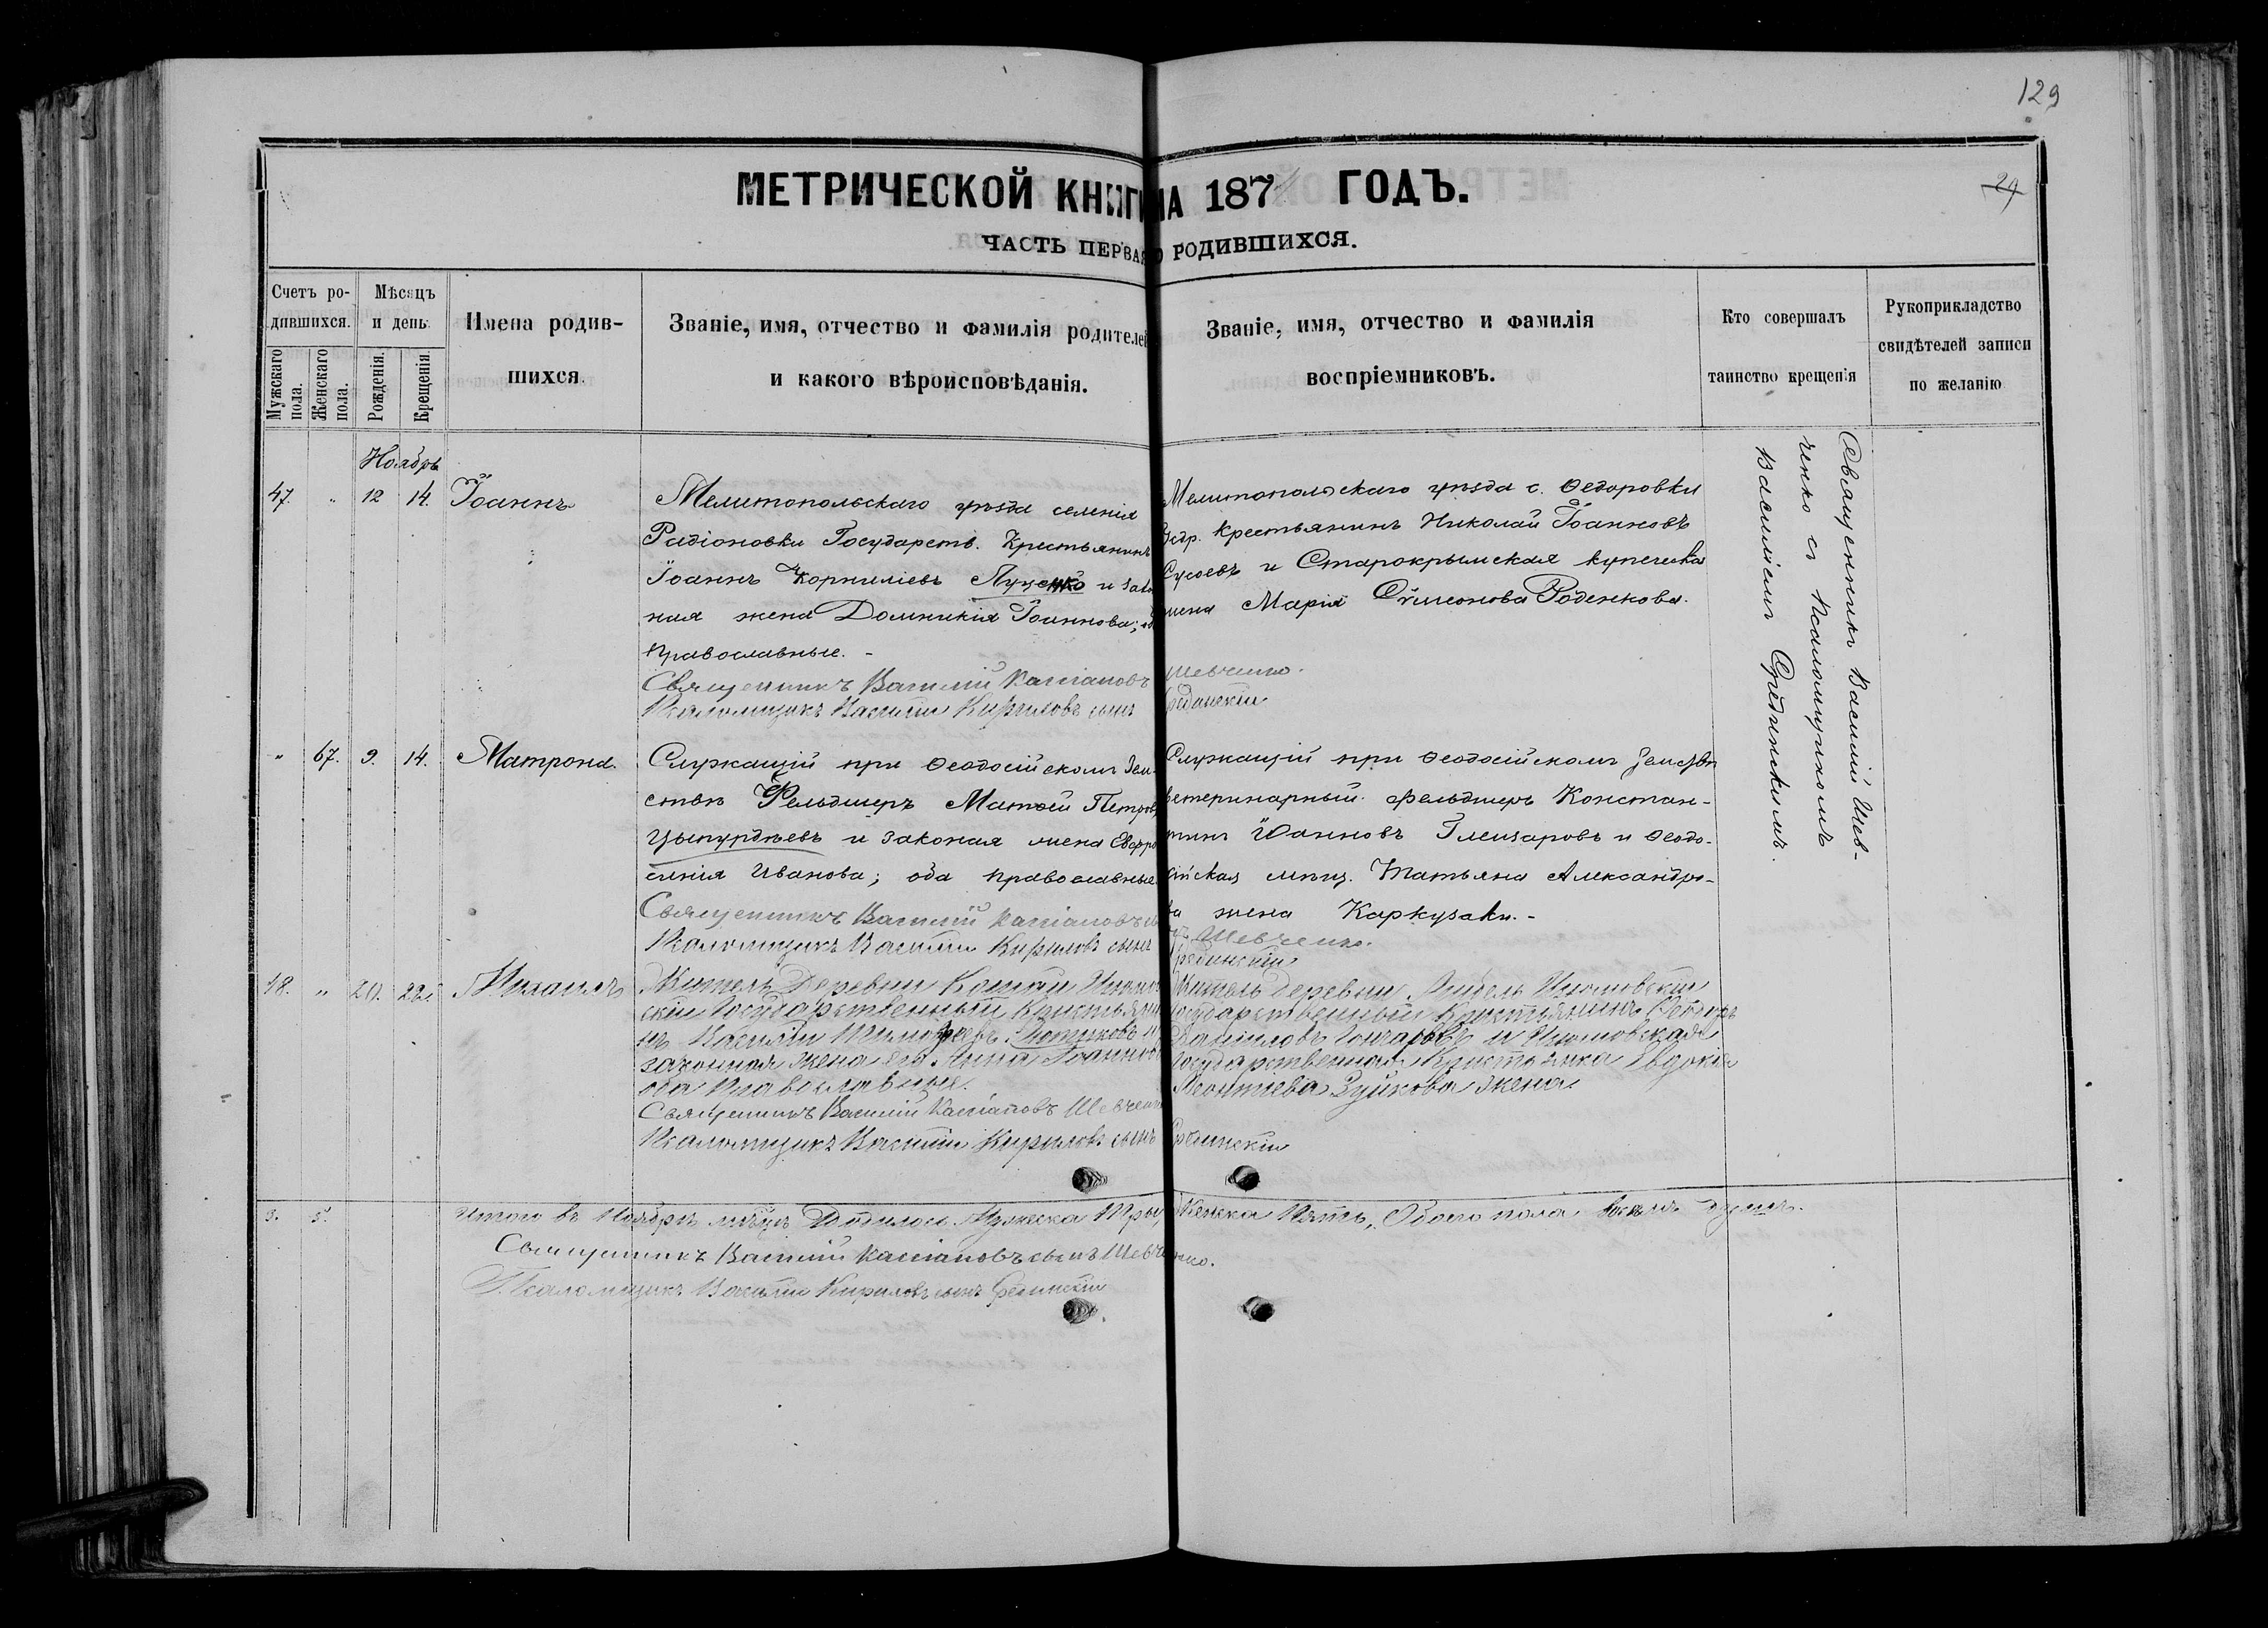 129
МЕТРИЧЕСКОЙ КНИГИ НА 187 ГОДЪ.
29
ЧАСТЬ ПЕРВАЯ О РОДИВШИХСЯ.
Счетъ ро-
дившихся.
Мужскаго пола.
Женскаго пола.
Мѣсяцъ
и день.
Рожденія.
Крещенія.
Имена родив-
шихся.
Званіе, имя, отчество и фамилія родителей
и какого вѣроисповѣданія.
Званіе, имя, отчество и фамилія
воспріемниковъ.
Кто совершалъ
таинство крещенія
Рукоприкладство
свидѣтелей записи
по желанію
Ноябрь
47. " 12 14. Іоаннъ
Мелитопольскаго уѣзда селенія
Радіоновки Государств. Крестьянинъ
Іоаннъ Корниліевъ Луценко и зако
ная жена Домникія Іоаннова;
православные. -
Священникъ Василій Кассіановъ Шевченко.
Псаломщикъ Василій Кириловъ сынъ Срединскій
Мелитопольскаго уѣзда с. Ѳедоровки
Госдр. крестьянинъ Николай Іоанновъ
Сусоевъ и Старокрымская купеческа
жена Марія Сѵмеонова Роденкова.
Священникъ Василій Шев-
ченко съ Псаломщикомъ
Василіемъ Срединскимъ.
" 67. 9. 14. Матрона.
Служащій при Ѳеодосійскомъ Зем-
ствѣ Фельдшеръ Матѳей Петровъ
Цыпурдѣевъ и законая жена Евфро
синія Иванова; оба православные.
Священникъ Василій Кассіановъ
Псаломщикъ Василій Кириловъ сынъ
Служащій при Ѳеодосійскомъ Земствѣ
ветеринарный фельдшеръ Констан-
тинъ Іоанновъ Глизаровъ и Ѳеодо-
сійская мѣщ. Татьяна Александро-
ва жена Каркузаки. -
Шевченко.
Срединскій
48. " 20. 22. Михаилъ
Житель Деревни
скій Государственный Крестьяни
нъ Василій Тимофеевъ
законная жена его Анна Іоаннов
оба Православныя.
Священникъ Василій Кассіановъ Шевченко
Псаломщикъ Василій Кириловъ сынъ Срединскій
Житель деревни
государственный Крестьянинъ
Даниловъ Гончаровъ и
государственная Крестьянка Евдокія
Леонтіева Зуйкова жена
3. 5. Итого въ Ноябрѣ мѣсяцѣ Родилось Мужеска Три, Женска Пять, Обоего пола восемь душъ.
Священникъ Василій Кассіановъ сынъ Шевченко.
Псаломщикъ Василій Кириловъ сынъ Срединскій